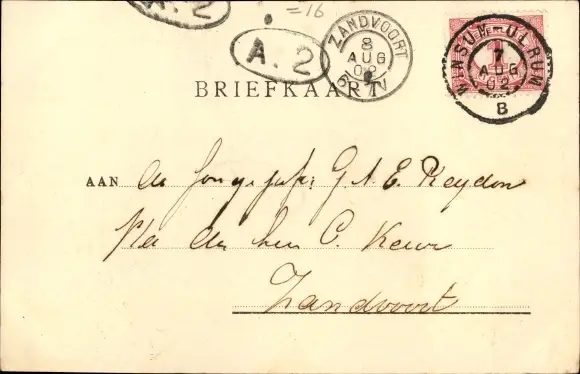 A. 2
=16
A. 2
ZANDVOORT
8
AUG
02
WINSUM-ULRUM
7
AUG
02
B
BRIEFKAART
AAN de Jonge juf: G A. E. Reydon
den heer C. Keur
Zandvoort